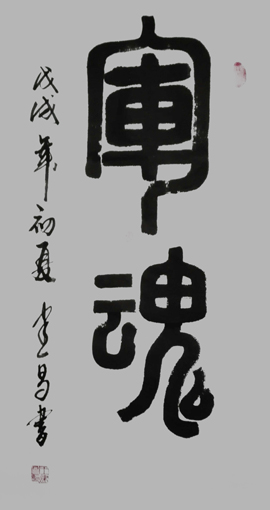 軍魂
戊戌年初夏 李昌書